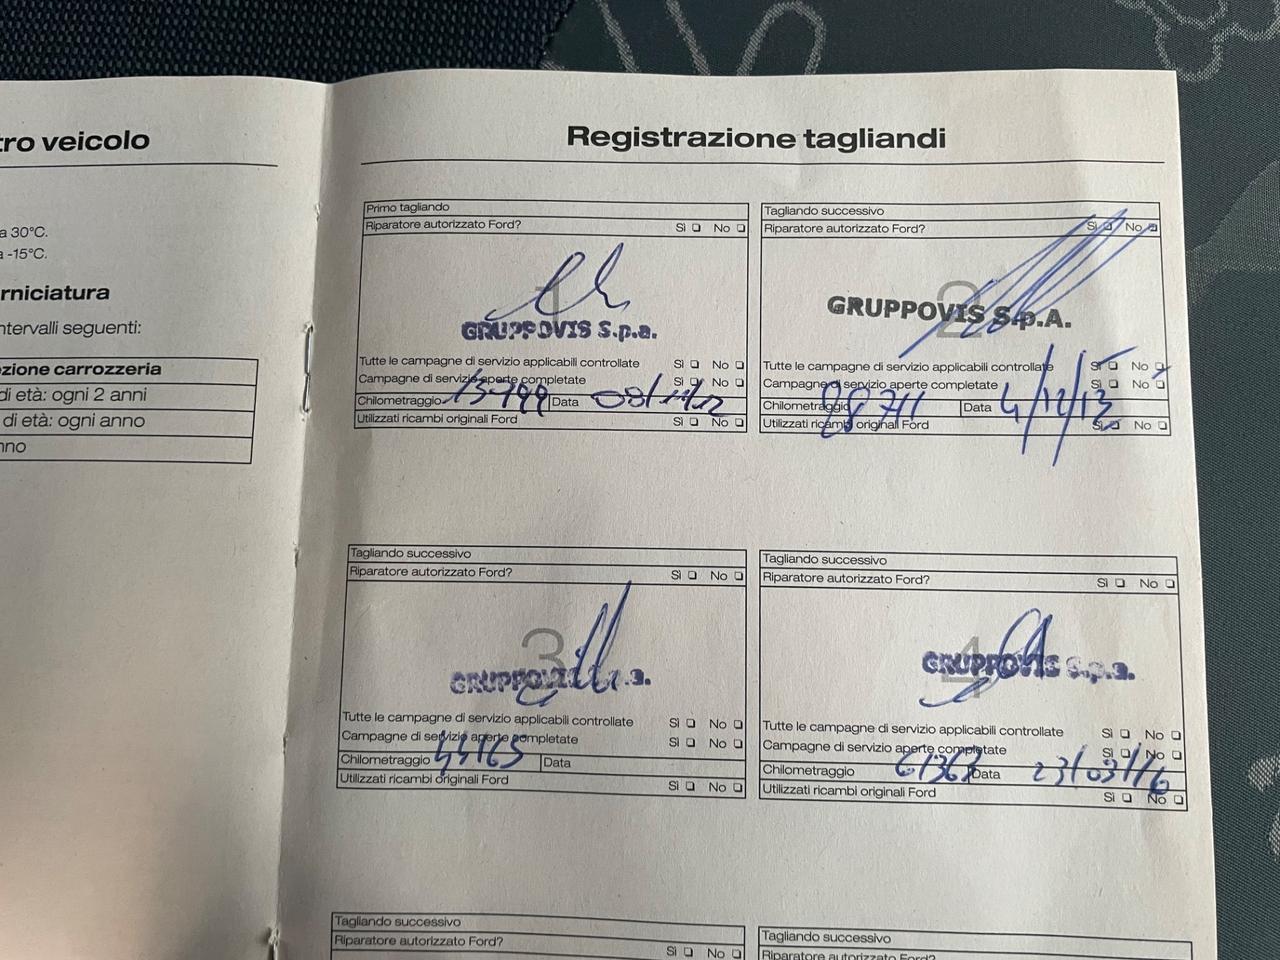 tro veicolo
a 30°C.
a -15°C.
rniciatura
ntervalli seguenti:
zione carrozzeria
di età: ogni 2 anni
di età: ogni anno
nno
Registrazione tagliandi
Primo tagliando
Riparatore autorizzato Ford? Sì No
1
GRUPPOVIS S.p.a.
Tutte le campagne di servizio applicabili controllate Sì No
Campagne di servizio aperte completate Sì No
Chilometraggio Data
Utilizzati ricambi originali Ford Sì No
Tagliando successivo
Riparatore autorizzato Ford? Sì No
2
GRUPPOVIS S.p.A.
Tutte le campagne di servizio applicabili controllate Sì No
Campagne di servizio aperte completate Sì No
Chilometraggio Data 4/12/13
Utilizzati ricambi originali Ford Sì No
Tagliando successivo
Riparatore autorizzato Ford? Sì No
3
GRUPPOVIS S.p.a.
Tutte le campagne di servizio applicabili controllate Sì No
Campagne di servizio aperte completate Sì No
Chilometraggio 44165 Data
Utilizzati ricambi originali Ford Sì No
Tagliando successivo
Riparatore autorizzato Ford? Sì No
4
GRUPPOVIS S.p.a.
Tutte le campagne di servizio applicabili controllate Sì No
Campagne di servizio aperte completate Sì No
Chilometraggio 61363 Data 23/03/16
Utilizzati ricambi originali Ford Sì No
Tagliando successivo
Riparatore autorizzato Ford? Sì No
Tagliando successivo
Riparatore autorizzato Ford?